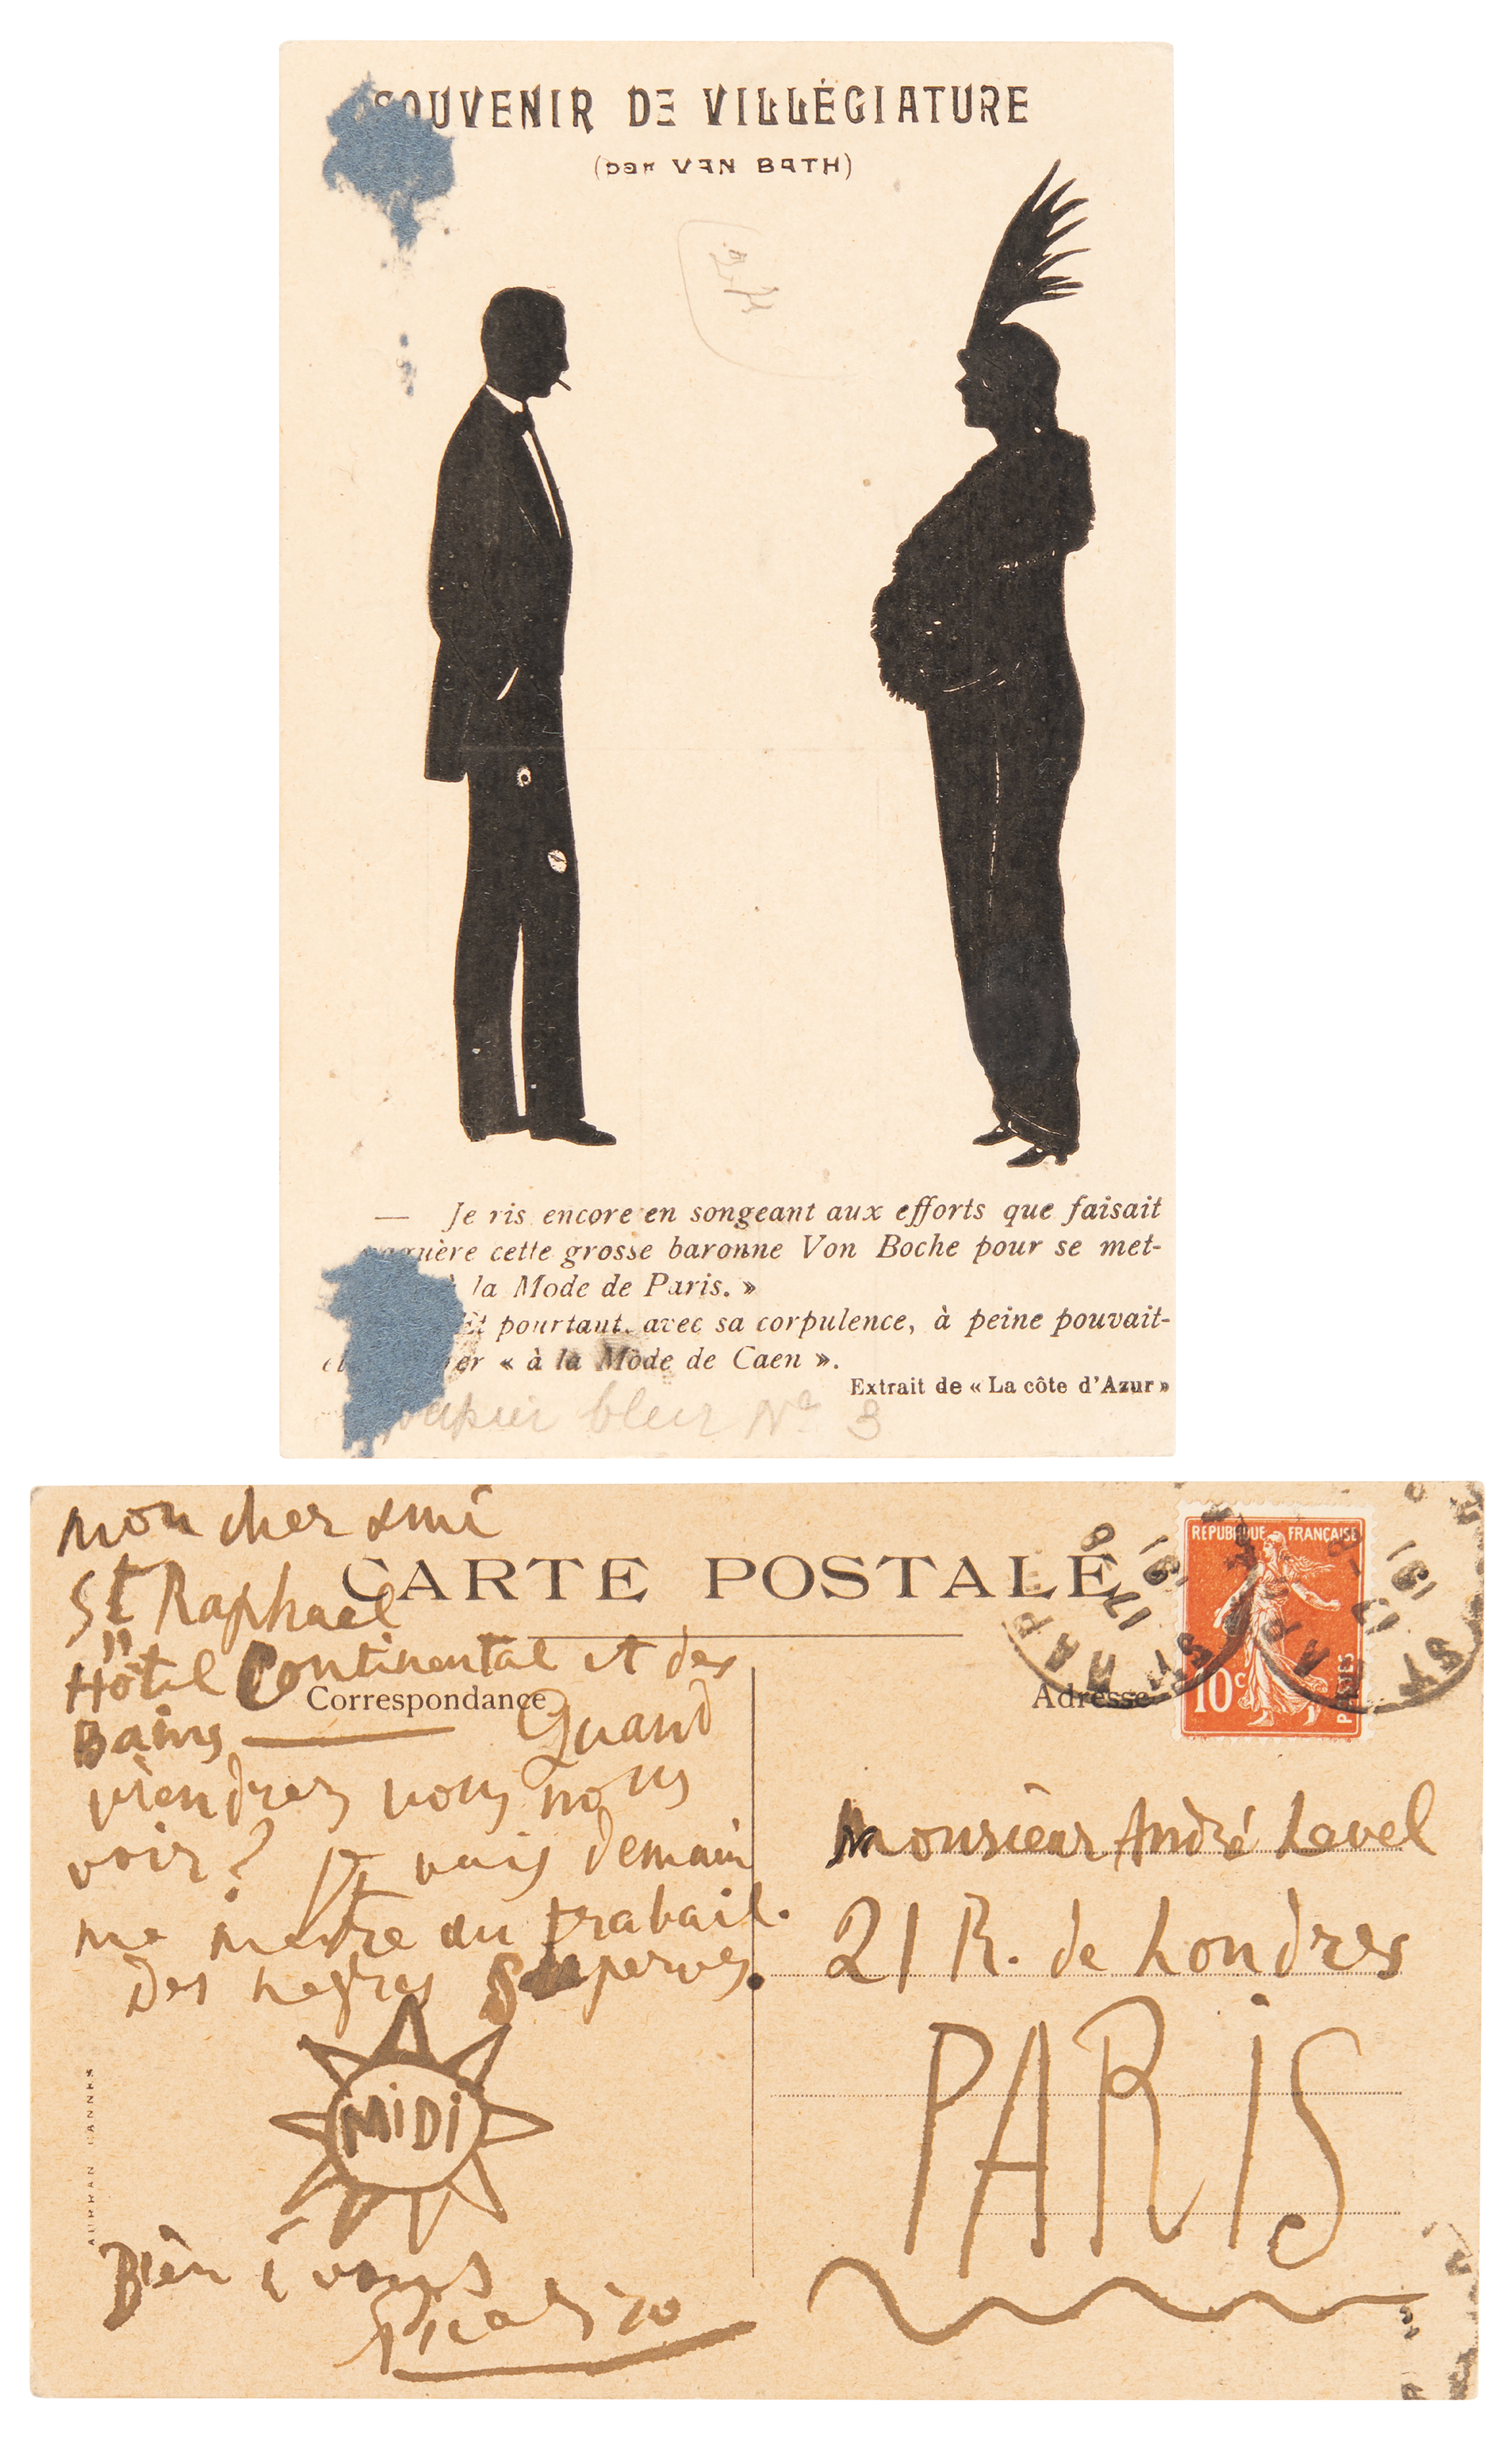 SOUVENIR DE VILLÉGIATURE
(par VAN BATH)
— Je ris encore en songeant aux efforts que faisait
naguère cette grosse baronne Von Boche pour se met-
à la Mode de Paris. »
Et pourtant, avec sa corpulence, à peine pouvait-
« à la Mode de Caen ».
Extrait de « La côte d'Azur »
papier bleu No 3
mon cher ami
St Raphael
Hôtel Continental et des
Bains — Quand
viendrez vous nous
voir? je vais demain
me metre au travail.
Des negres superves
MiDi
Bien à vous
Picasso
CARTE POSTALE
Correspondance
Adresse
AURRAN CANNES
REPUBLIQUE FRANÇAISE
10c
POSTES
Monsieur André Level
21 R. de Londres
PARiS